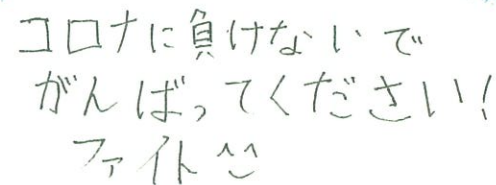 コロナに負けないで
がんばってください!
ファイト ^^